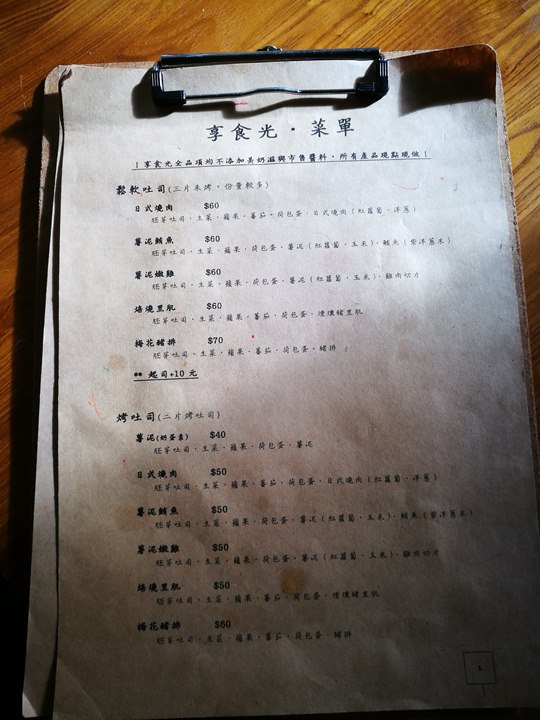 享食光‧菜單
!享食光全品項均不添加美奶滋與市售醬料,所有產品現點現做!
鬆軟吐司(三片未烤‧份量較多)
日式燒肉 $60
胚芽吐司‧生菜‧蘋果‧蕃茄‧荷包蛋‧日式燒肉(紅蘿蔔‧洋蔥)
薯泥鮪魚 $60
胚芽吐司‧生菜‧蘋果‧荷包蛋‧薯泥(紅蘿蔔‧玉米)‧鮪魚(紫洋蔥末)
薯泥嫩雞 $60
胚芽吐司‧生菜‧蘋果‧荷包蛋‧薯泥(紅蘿蔔‧玉米)‧雞肉切片
培燒里肌 $60
胚芽吐司‧生菜‧蘋果‧蕃茄‧荷包蛋‧煙燻豬里肌
梅花豬排 $70
胚芽吐司‧生菜‧蘋果‧蕃茄‧荷包蛋‧豬排
** 起司+10 元
烤吐司(二片烤吐司)
薯泥(奶蛋素) $40
胚芽吐司‧生菜‧蘋果‧荷包蛋‧薯泥
日式燒肉 $50
胚芽吐司‧生菜‧蘋果‧蕃茄‧荷包蛋‧日式燒肉(紅蘿蔔‧洋蔥)
薯泥鮪魚 $50
胚芽吐司‧生菜‧蘋果‧荷包蛋‧薯泥(紅蘿蔔‧玉米)‧鮪魚(紫洋蔥末)
薯泥嫩雞 $50
胚芽吐司‧生菜‧蘋果‧荷包蛋‧薯泥(紅蘿蔔‧玉米)‧雞肉切片
培燒里肌 $50
胚芽吐司‧生菜‧蘋果‧蕃茄‧荷包蛋‧煙燻豬里肌
梅花豬排 $60
胚芽吐司‧生菜‧蘋果‧蕃茄‧荷包蛋‧豬排
1